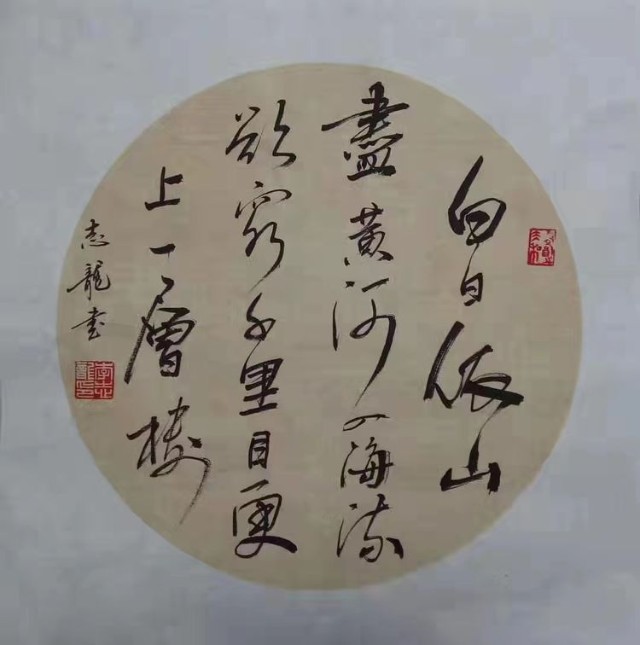 白日依山
盡黄河入海流
欲窮千里目更
上一層樓
志龍书